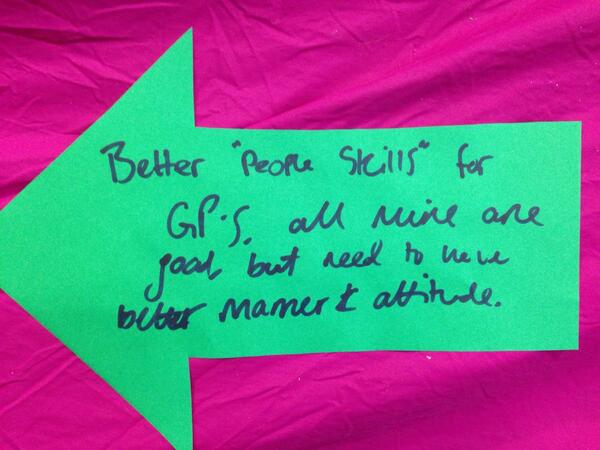 Better "People Skills" for
GP'S. all mine are
good, but need to have
better manner & attitude.